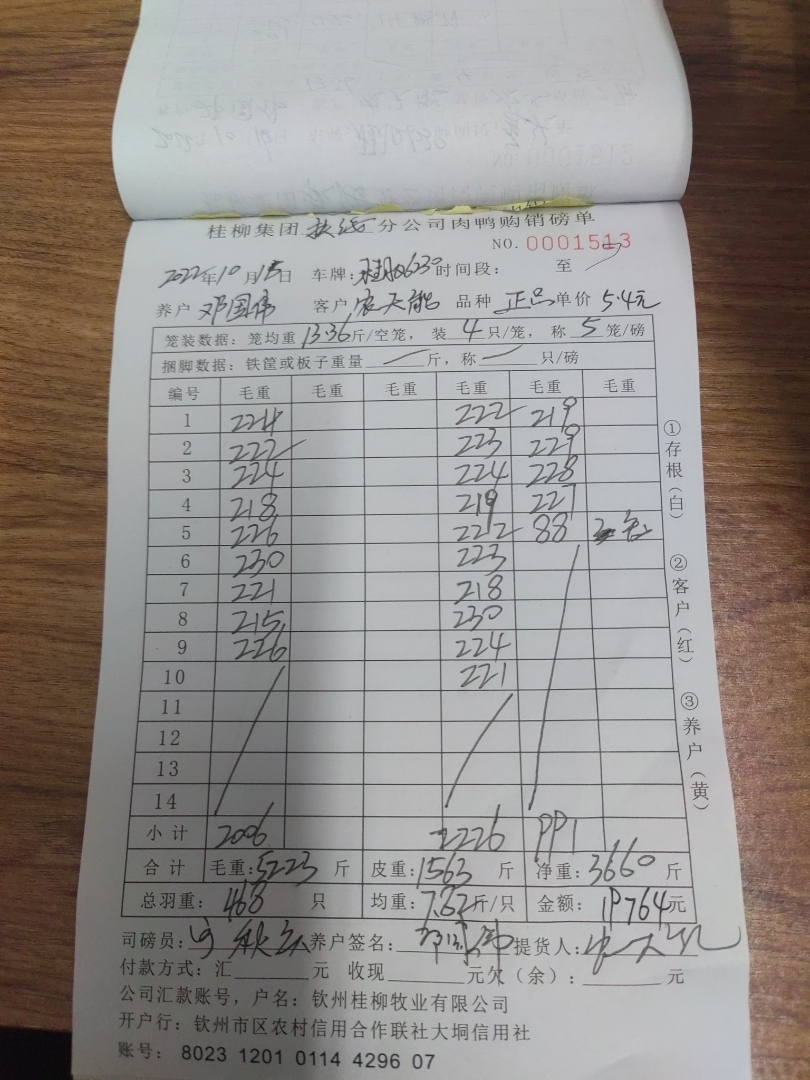 桂柳集团 扶绥 分公司肉鸭购销磅单
NO. 0001513
2022年10月15日 车牌: 时间段: 至
养户 邓国伟 客户 农天能 品种 正品 单价 5.4元
笼装数据: 笼均重 13.36 斤/空笼, 装 4 只/笼, 称 5 笼/磅
捆脚数据: 铁筐或板子重量 斤, 称 只/磅
编号 毛重 毛重 毛重 毛重 毛重 毛重
1 224 222 219
2 222 223 229
3 224 224 228
4 218 219 227
5 226 222 88
6 230 223
7 221 218
8 215 230
9 226 224
10 221
11
12
13
14
小计 2006 2226 991
合计 毛重: 5223 斤 皮重: 1563 斤 净重: 3660 斤
总羽重: 468 只 均重: 7.82 斤/只 金额: 19764 元
司磅员: 养户签名: 提货人:
付款方式: 汇 元 收现 元欠(余): 元
公司汇款账号, 户名: 钦州桂柳牧业有限公司
开户行: 钦州市区农村信用合作联社大垌信用社
账号: 8023 1201 0114 4296 07
①存根(白)
②客户(红)
③养户(黄)